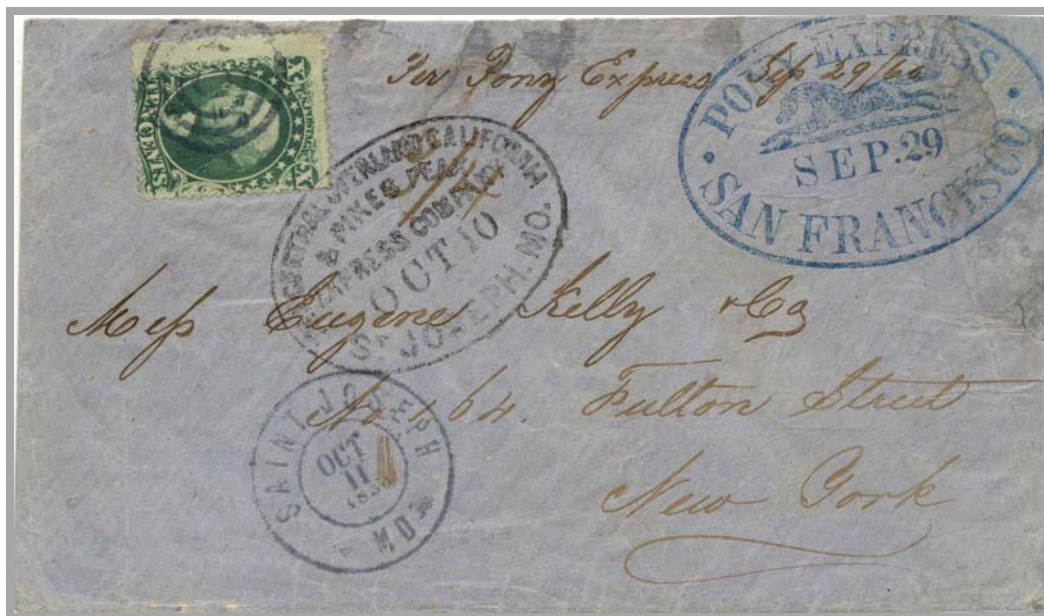 Per Pony Express Sep 29/60
PONY EXPRESS
SEP. 29
SAN FRANCISCO
CENTRAL OVERLAND CALIFORNIA
& PIKES PEAK
EXPRESS COMPANY
OCT 10
ST JOSEPH. MO.
Mess Eugene Kelly & Co
No 164 Fulton Street
New York
SAINT JOSEPH
OCT
11
MO
U.S. POSTAGE
TEN CENTS